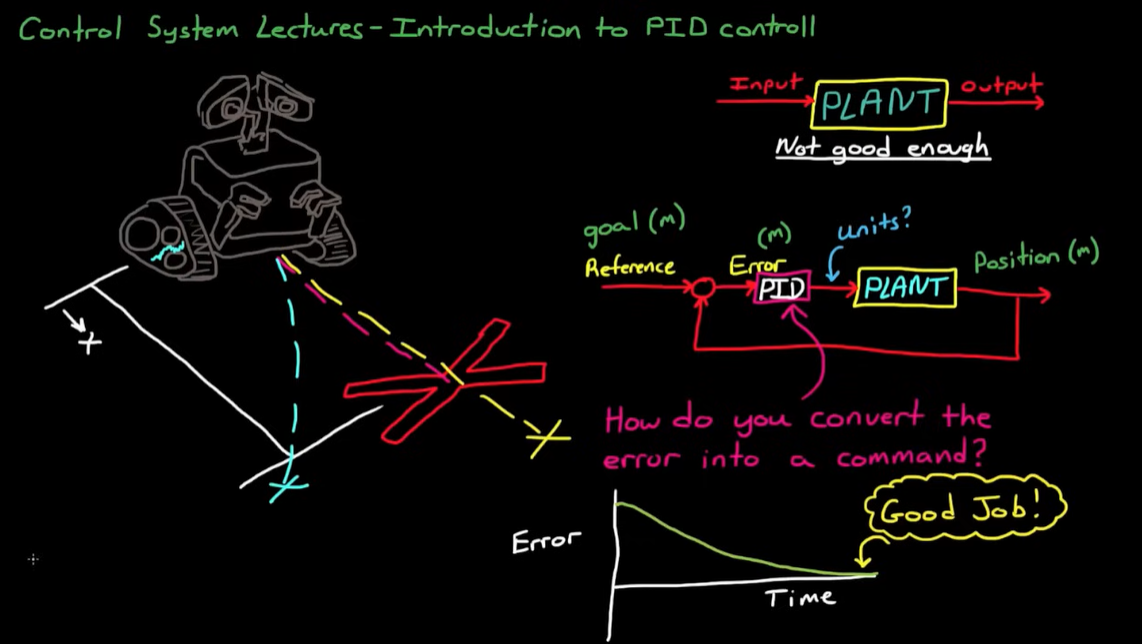 Control System Lectures - Introduction to PID controll
Input
PLANT
output
Not good enough
goal (m)
(m)
units?
Position (m)
Reference
Error
PID
PLANT
+
How do you convert the
error into a command?
Good Job!
Error
Time